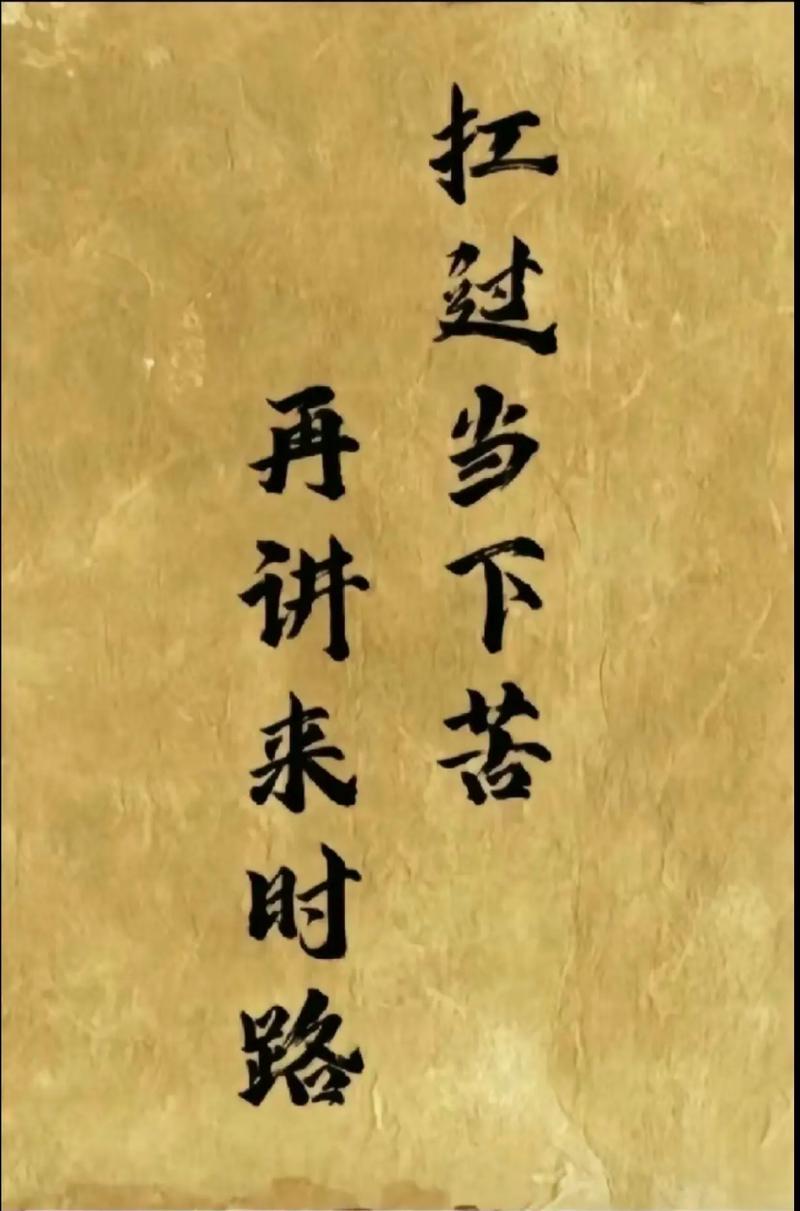 扛过当下苦
再讲来时路